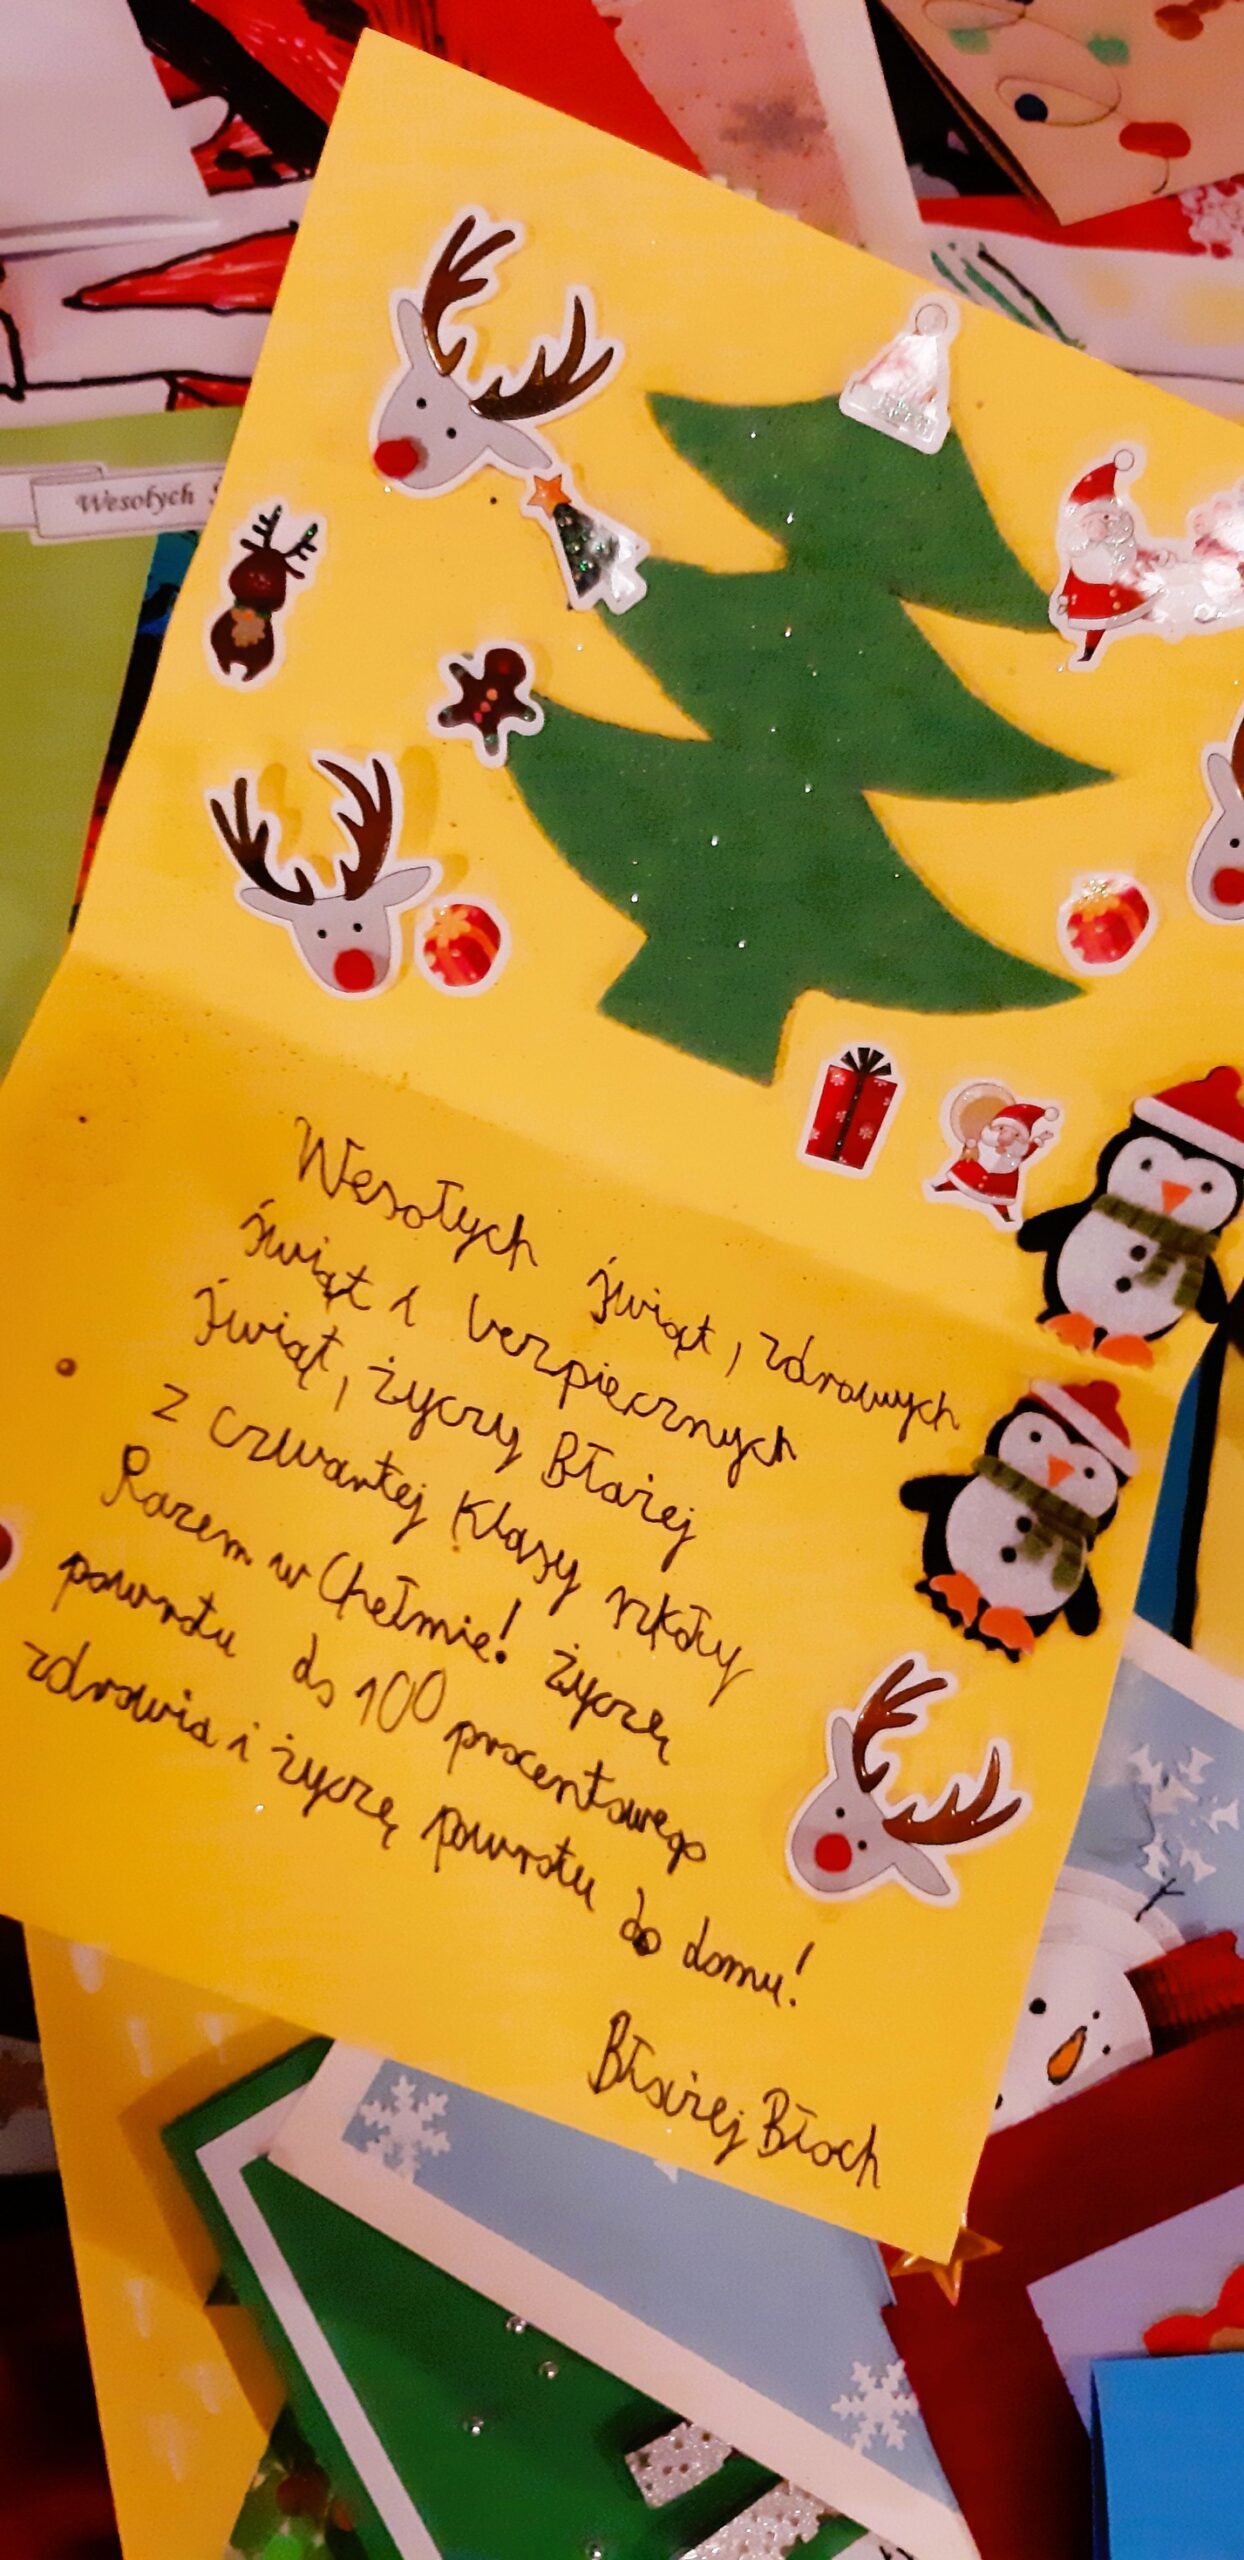 Wesołych
Wesołych świąt, zdrowych
świąt i bezpiecznych
świąt, życzy Błażej
z czwartej klasy szkoły
Razem w Chełmie! życzę
powrotu do 100 procentowego
zdrowia i życzę powrotu do domu!
Błażej Błoch